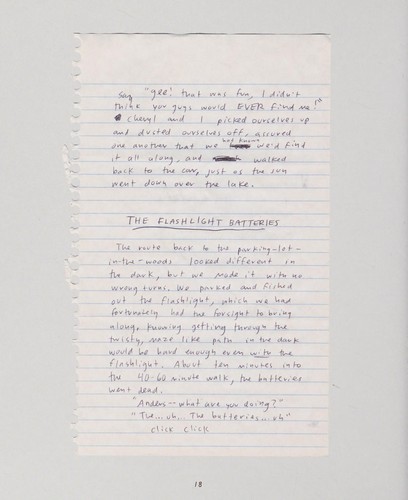 Say "gee! that was fun, I didn't
think you guys would EVER find me!"
Cheryl and I picked ourselves up
and dusted ourselves off, assured
one another that we had known we'd find
it all along, and walked
back to the car, just as the sun
went down over the lake.
THE FLASHLIGHT BATTERIES
The route back to the parking-lot-
in-the-woods looked different in
the dark, but we made it with no
wrong turns. We parked and fished
out the flashlight, which we had
fortunately had the forsight to bring
along, knowing getting through the
twisty, maze like path in the dark
would be hard enough even with the
flashlight. About ten minutes into
the 40-60 minute walk, the batteries
went dead.
"Anders--what are you doing?"
"The...uh.. The batteries...uh"
click click
18